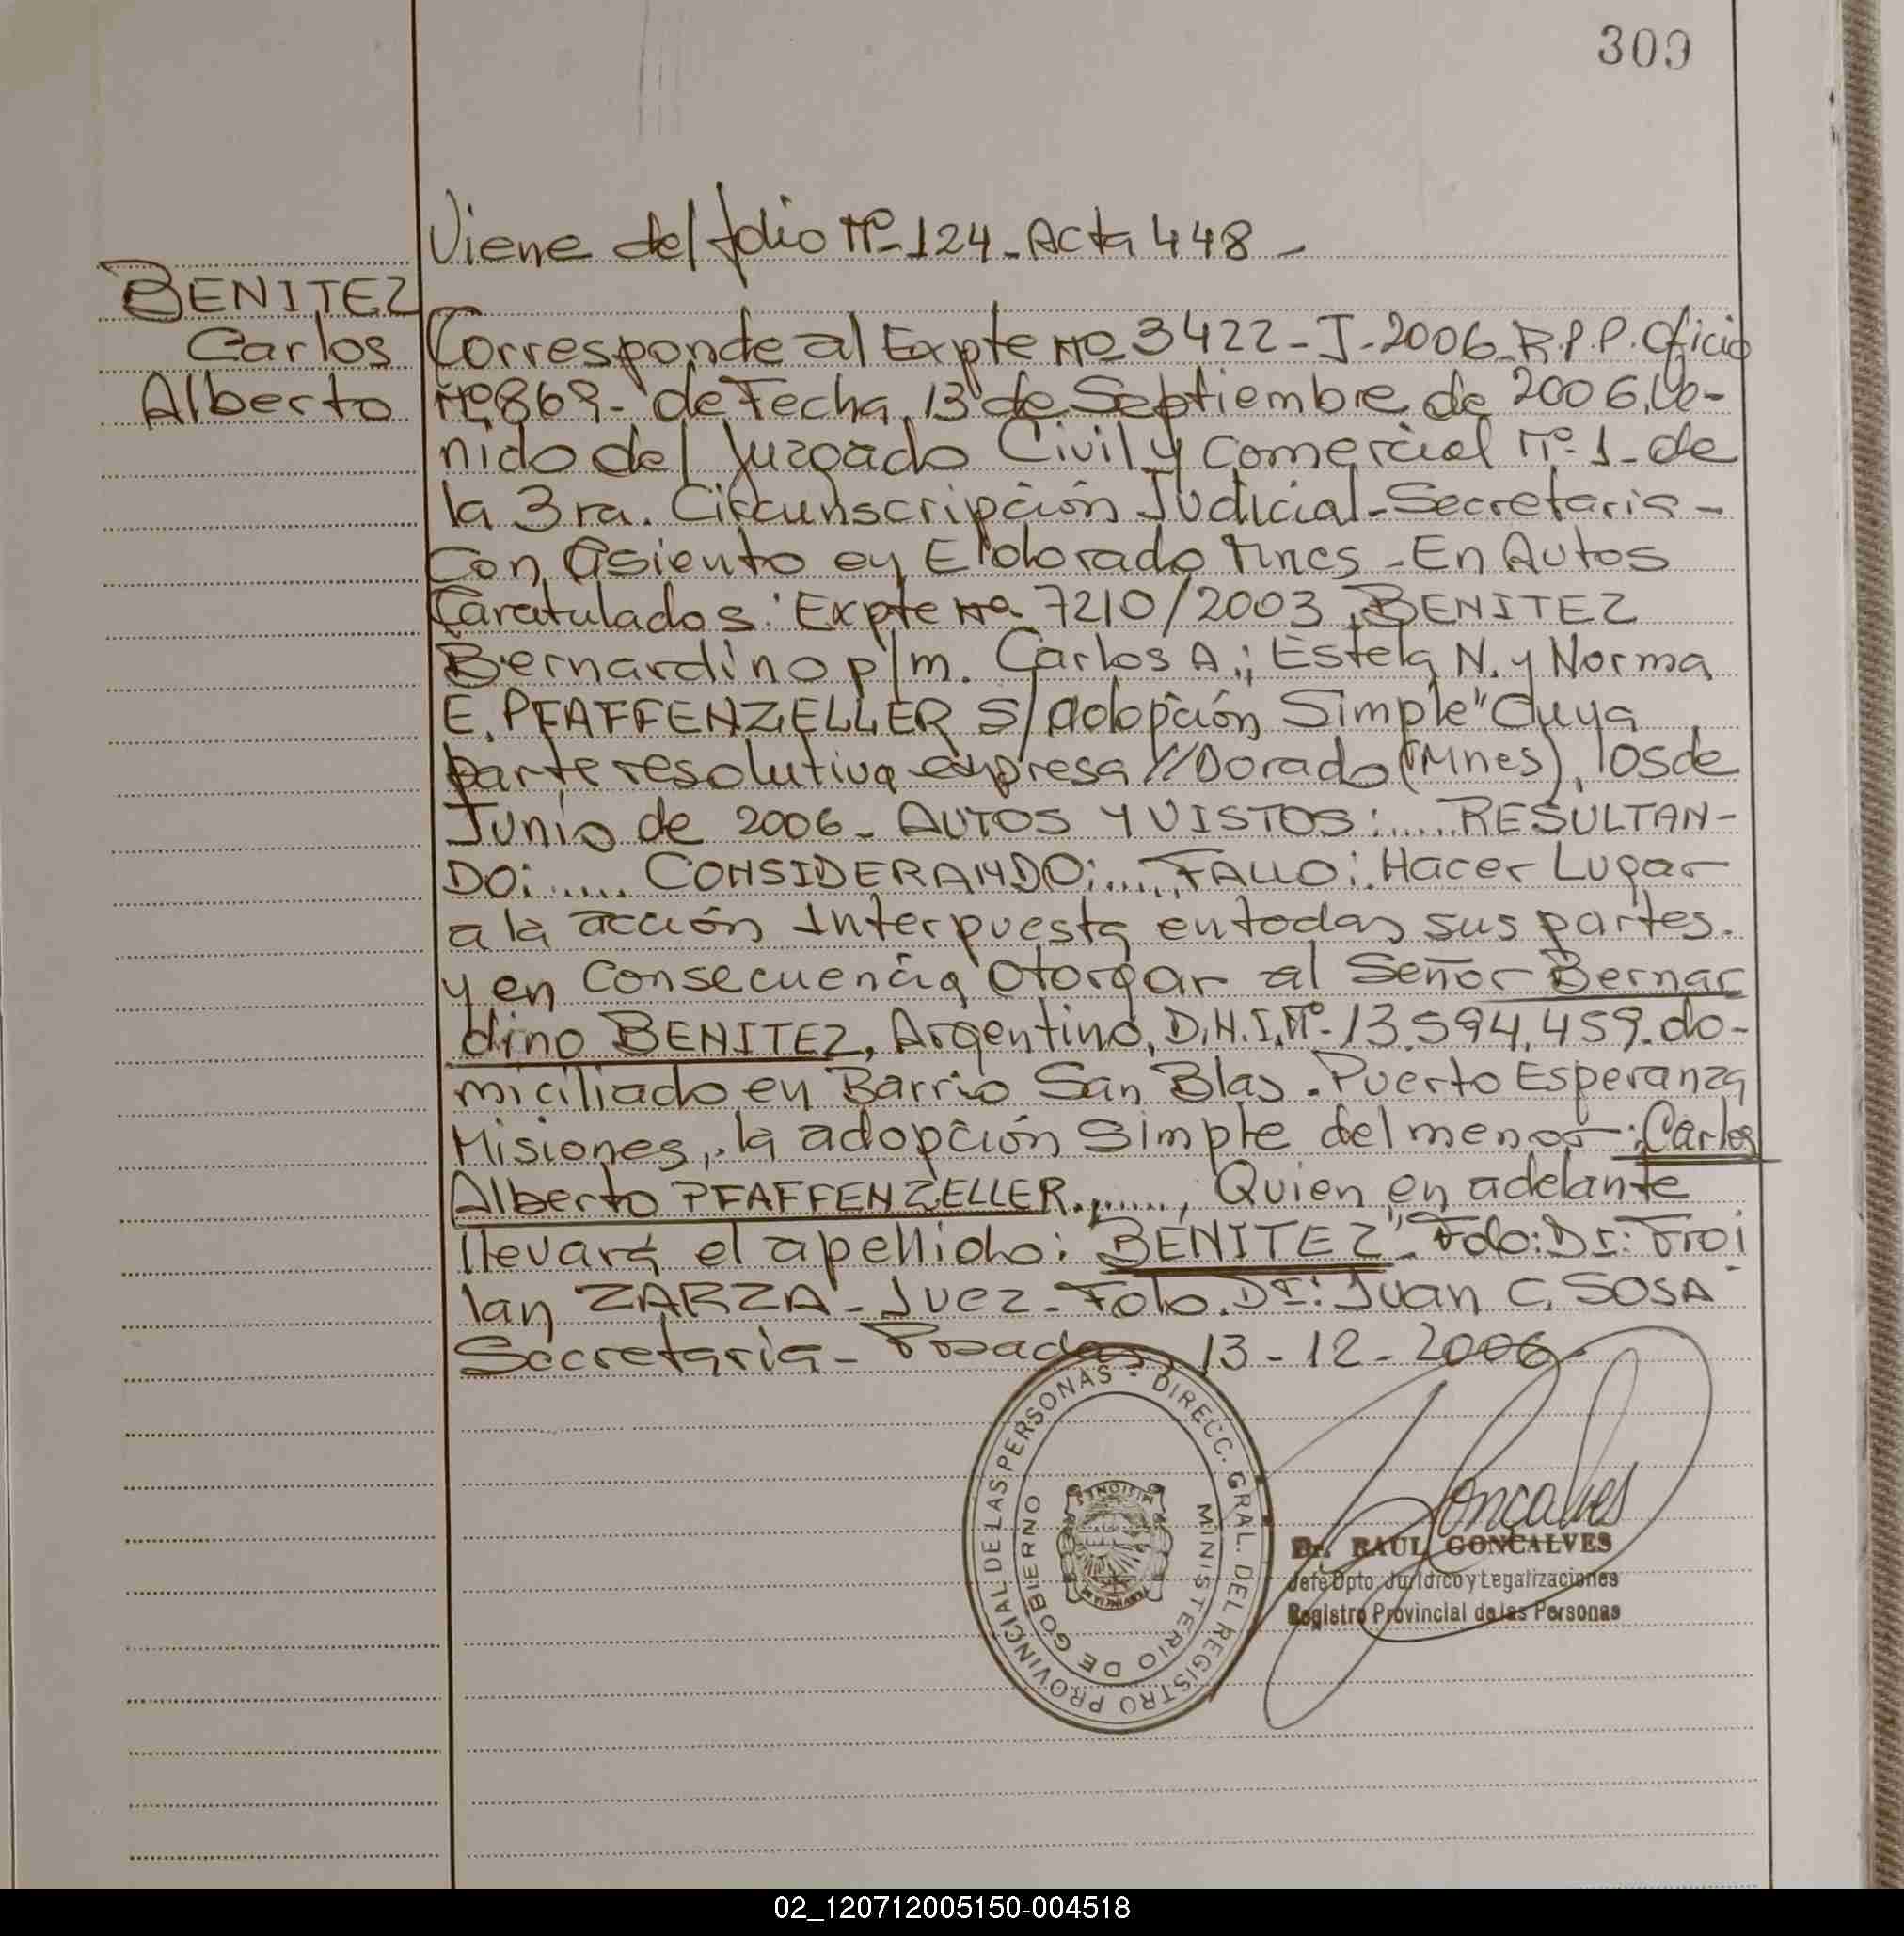 309
Viene del folio Nº-124-Acta 448-
BENITEZ
Carlos
Alberto
Corresponde al Expte Nº 3422-J-2006-R.P.P. Oficio
Nº 869- de Fecha, 13 de Septiembre de 2006, Ve-
nido del Juzgado Civil y Comercial Nº-1-de
la 3ra. Circunscripción Judicial-Secretaria-
Con Asiento en Eldorado Mnes-En Autos
Caratulados: Expte Nº 7210/2003, BENITEZ
Bernardino p/m. Carlos A.; Estela N. y Norma
E. PFAFFENZELLER S/Adopción Simple" Cuya
parte resolutiva expresa //Dorado (Mnes), 10 s de
Junio de 2006- AUTOS Y VISTOS:..... RESULTAN-
DO:..... CONSIDERANDO:..... FALLO: Hacer Lugar
a la acción Interpuesta en todas sus partes.
y en Consecuencia Otorgar al Señor Bernar
dino BENITEZ, Argentino, D.N.I, Nº-13.594.459. do-
miciliado en Barrio San Blas. Puerto Esperanza
Misiones,. la adopción Simple del menor: Carlos
Alberto PFAFFENZELLER......., Quien en adelante
llevará el apellido: "BENITEZ"- Fdo: Dr: Froi
lan ZARZA- Juez- Fdo. Dr: Juan C. SOSA-
Secretaria- Posadas, 13-12-2006-
DIRECC. GRAL. DEL REGISTRO PROVINCIAL DE LAS PERSONAS -
MINISTERIO DE GOBIERNO
MISIONES
Goncalves
Dr. RAUL GONCALVES
Jefe Dpto. Jurídico y Legalizaciones
Registro Provincial de las Personas
02_120712005150-004518